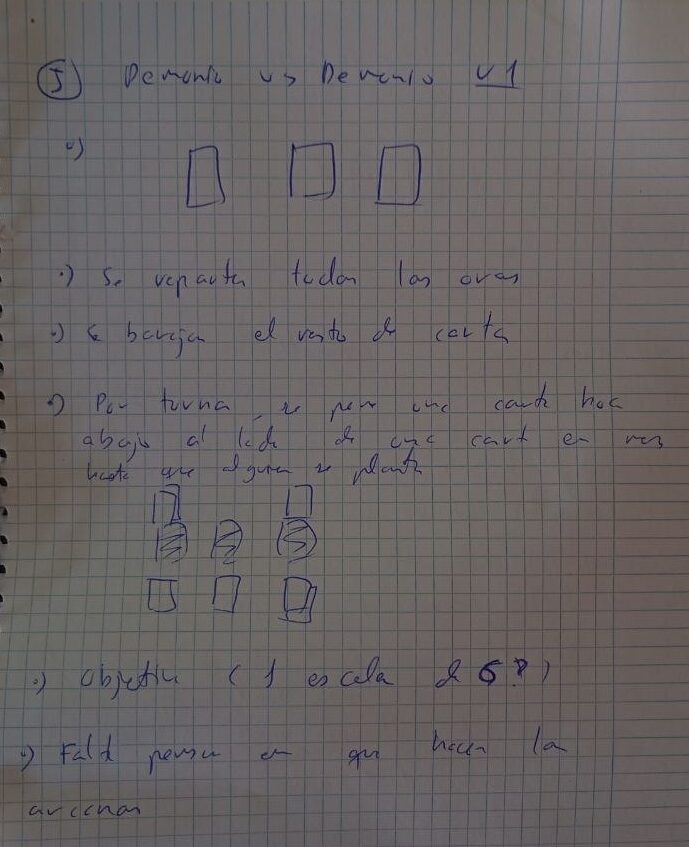 J) Demonio vs Demonio v1
·) Se reparten todas las oros
·) Se baraja el resto de carta
·) Por turna, se pone una carta boca
abajo al lado de una carta en mesa
hasta que alguien se planta
·) Objetivo ( 1 escala de 6? )
·) Falta pensar en que hacen la
arcanas